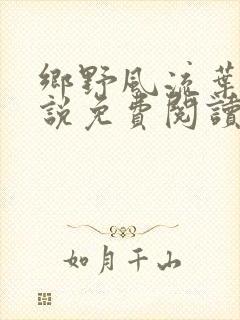 鄉野風流葉
說免費閱讀
如月千山